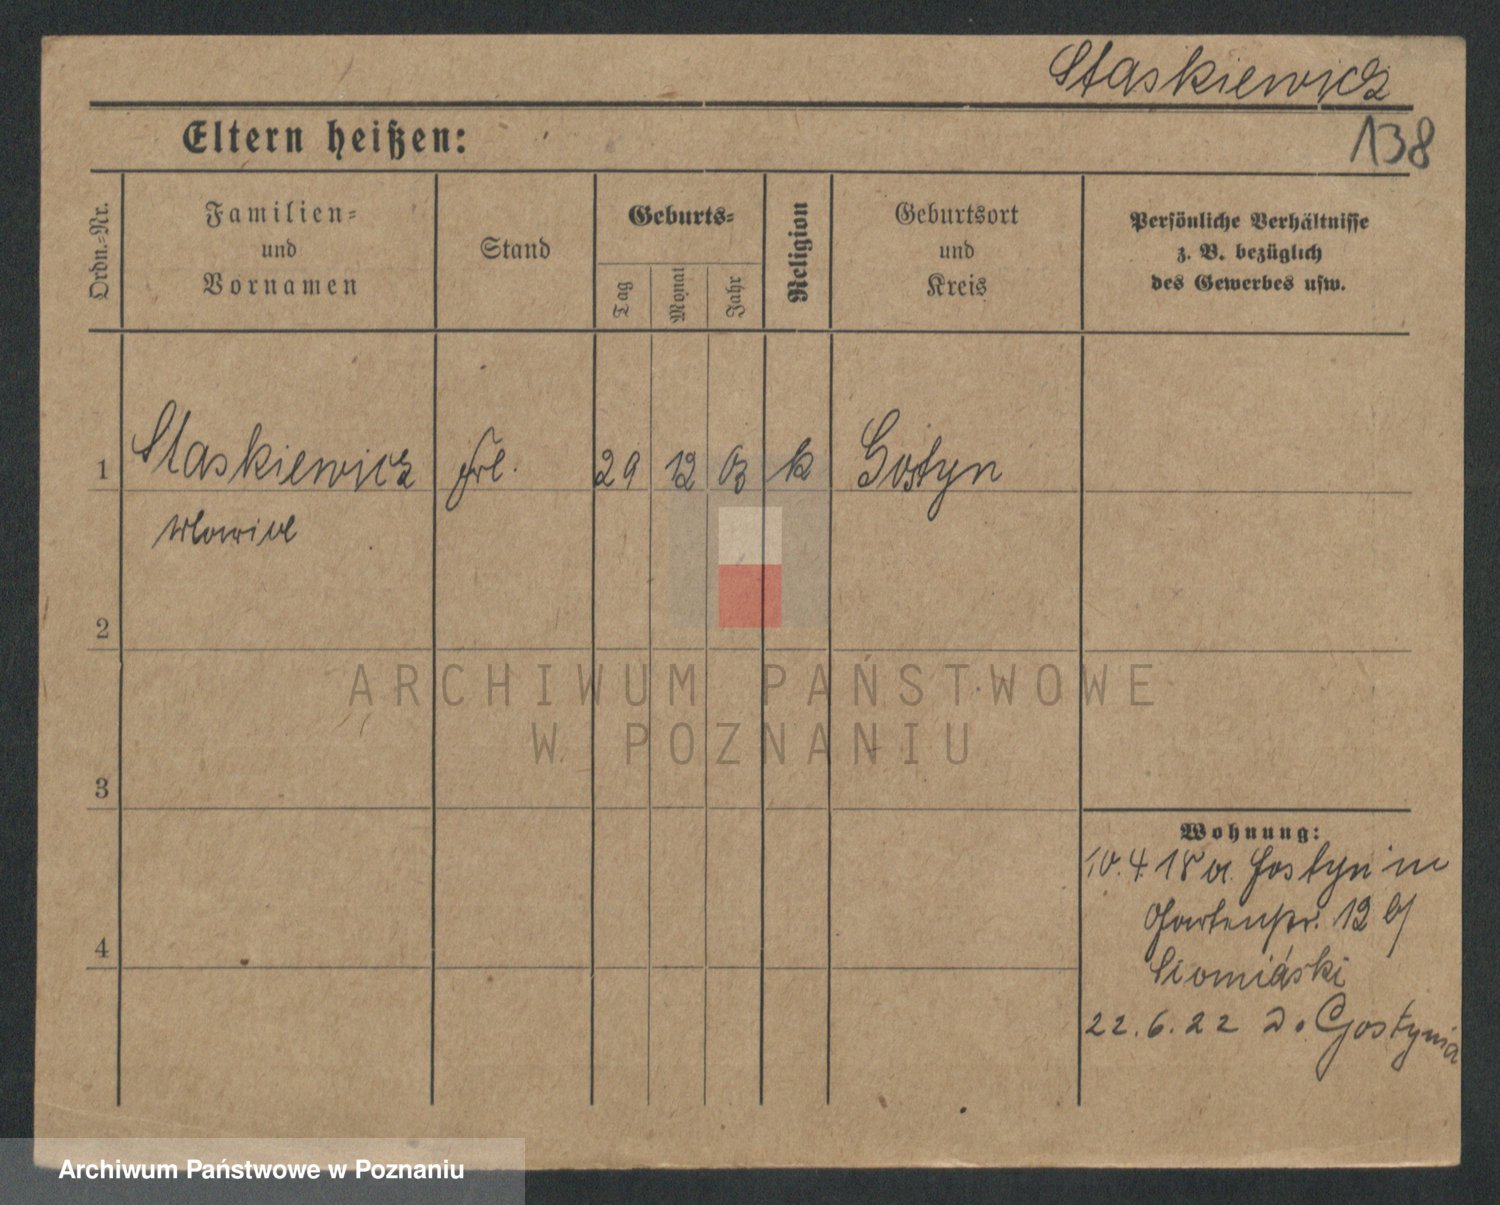 Staskiewicz
138
Eltern heißen:
Ordn.-Nr.
Familien-
und
Vornamen
Stand
Geburts-
Tag
Monat
Jahr
Religion
Geburtsort
und
Kreis
Persönliche Verhältnisse
z. B. bezüglich
des Gewerbes usw.
1 Staskiewicz Frl. 29 12 03 k Gostyn
2
3
4
Wohnung:
10.4 18 a. Gostyn in
Gartenstr. 12 b/
22.6.22 do Gostynia
ARCHIWUM PAŃSTWOWE
W POZNANIU
Archiwum Państwowe w Poznaniu